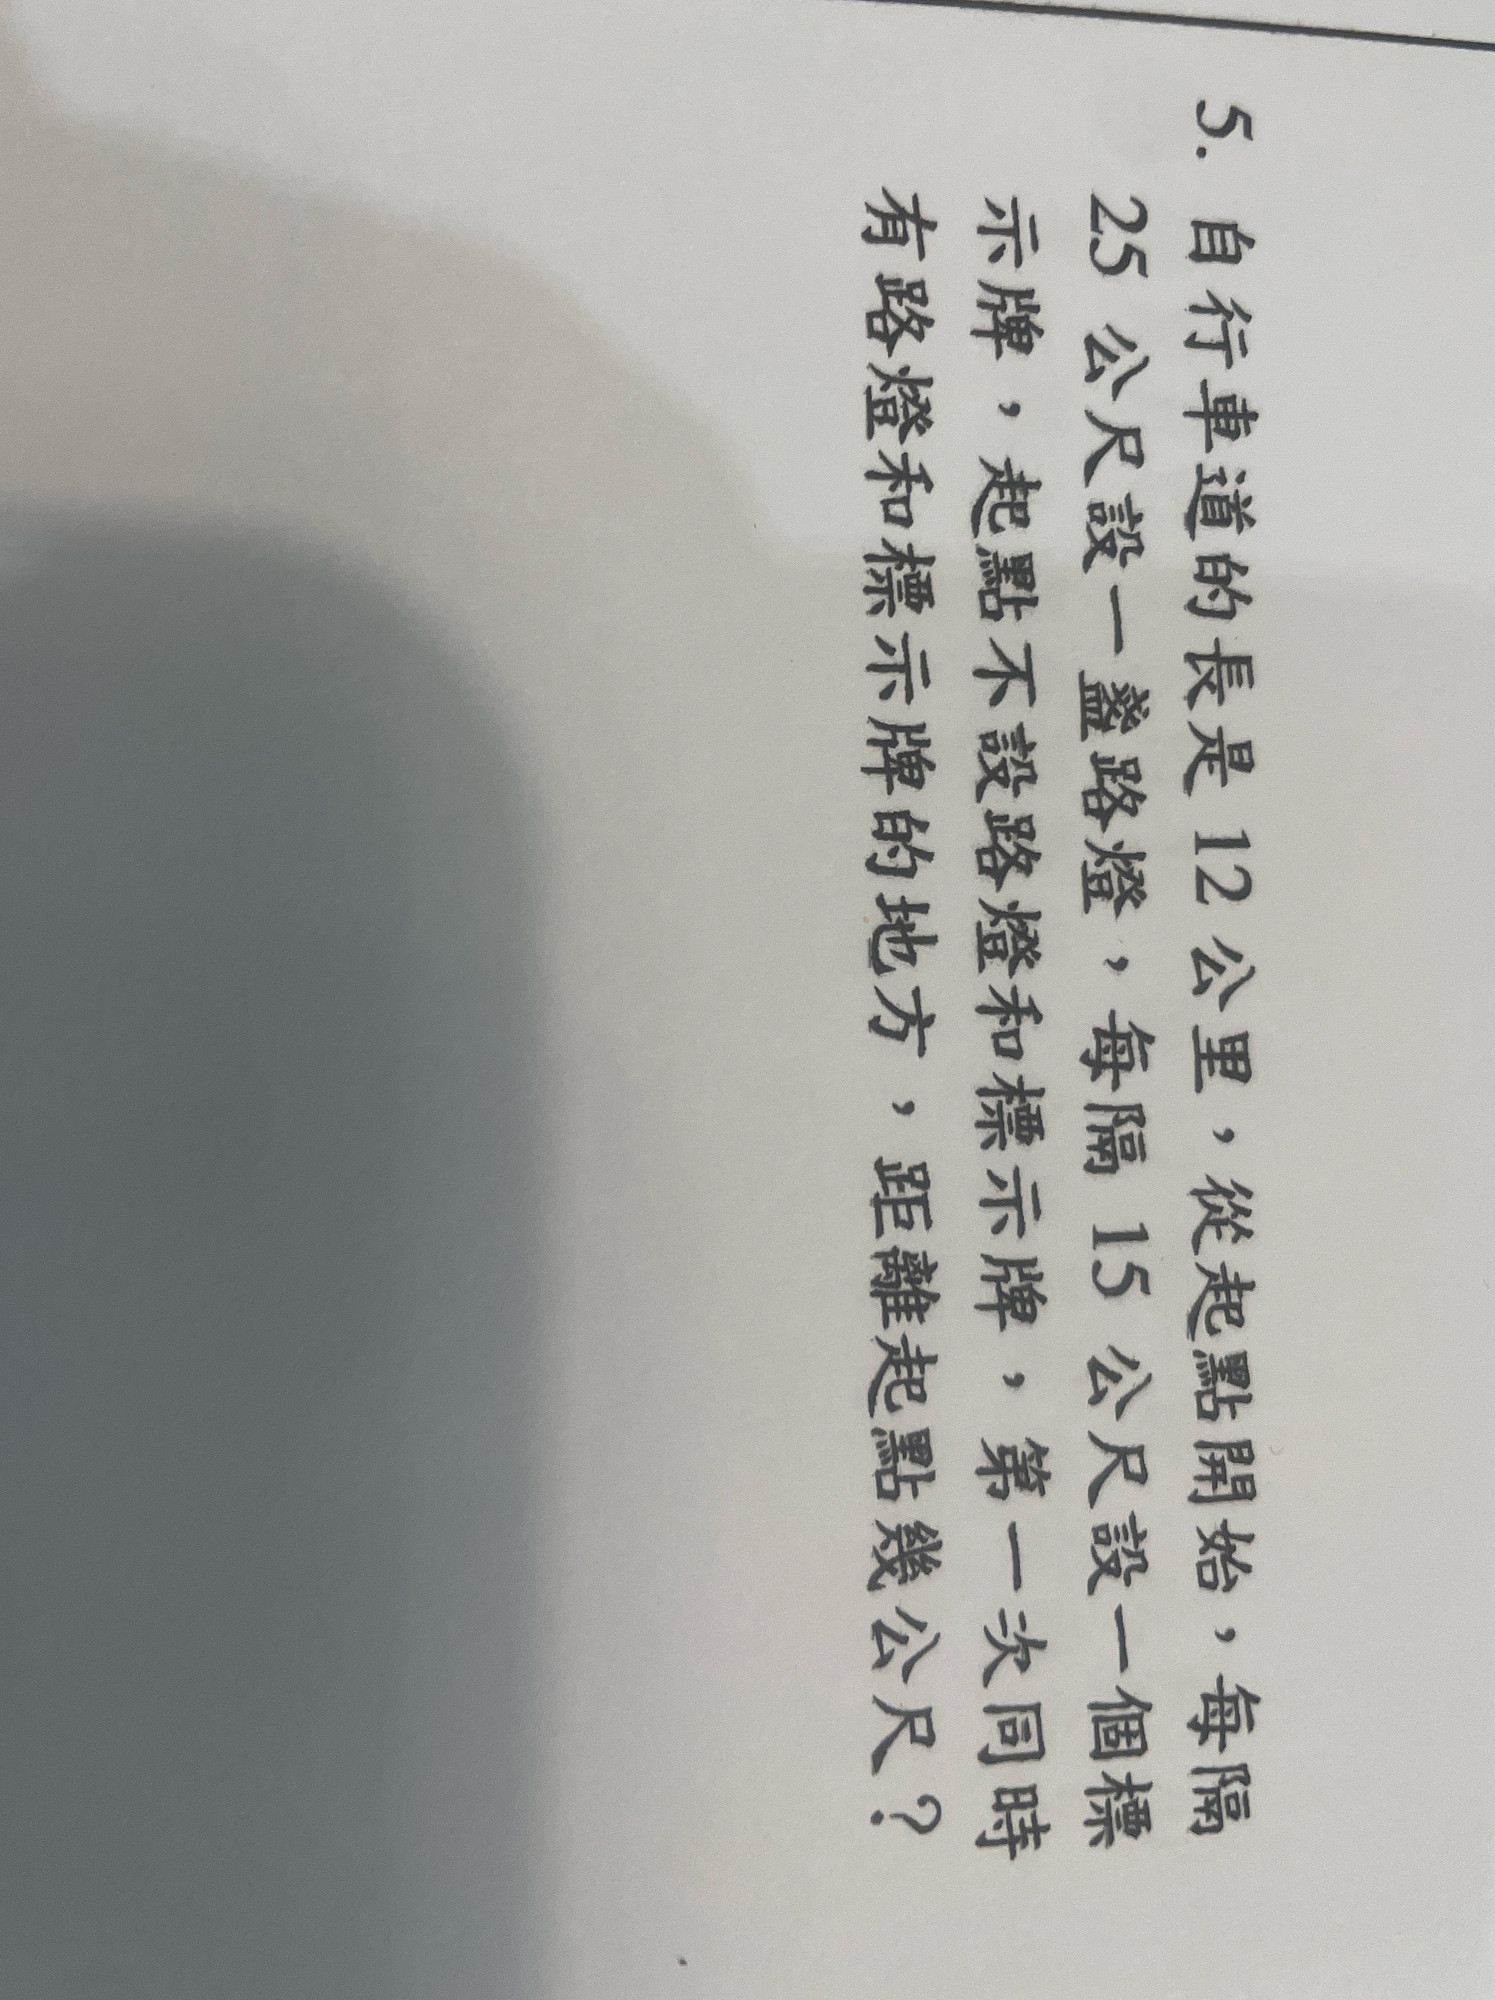 5. 自行車道的長是 12 公里，從起點開始，每隔
25 公尺設一盞路燈，每隔 15 公尺設一個標
示牌，起點不設路燈和標示牌，第一次同時
有路燈和標示牌的地方，距離起點幾公尺？